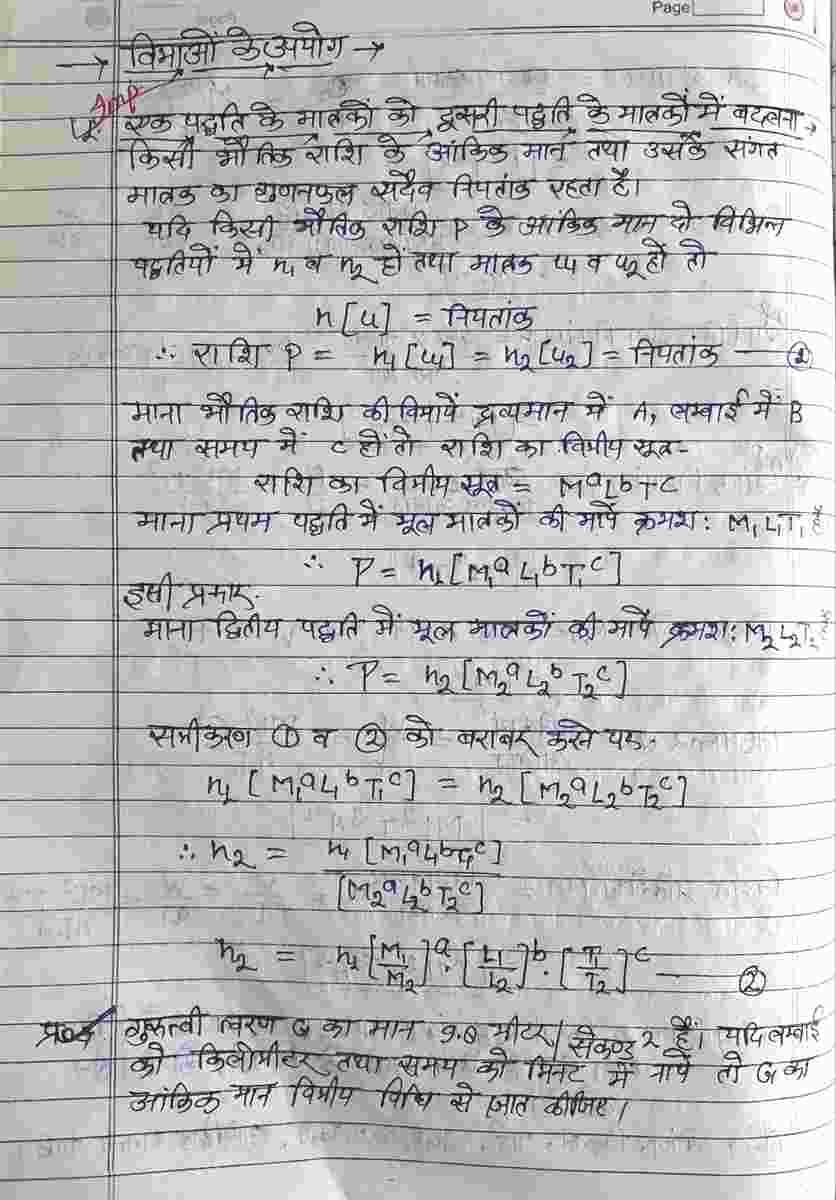 Page
→ विमाओं के उपयोग →
Imp
एक पद्धति के मात्रकों को दूसरी पद्धति के मात्रकों में बदलना →
किसी भौतिक राशि के आंकिक मान तथा उसके संगत
मात्रक का गुणनफल सदैव नियतांक रहता है।
यदि किसी भौतिक राशि P के आंकिक मान दो विभिन्न
पद्धतियों में n₁ व n₂ हों तथा मात्रक u₁ व u₂ हों तो
n[u] = नियतांक
∴ राशि P = n₁[u₁] = n₂[u₂] = नियतांक — ①
माना भौतिक राशि की विमायें द्रव्यमान में A, लम्बाई में B
तथा समय में C हों तो राशि का विमीय सूत्र-
राशि का विमीय सूत्र = MᵃLᵇTᶜ
माना प्रथम पद्धति में मूल मात्रकों की मापें क्रमश: M₁L₁T₁ है
∴ P = n₁[M₁ᵃL₁ᵇT₁ᶜ]
इसी प्रकार.
माना द्वितीय पद्धति में मूल मात्रकों की मापें क्रमश: M₂L₂T₂ है
∴ P = n₂[M₂ᵃL₂ᵇT₂ᶜ]
समीकरण ① व ② को बराबर करने पर.
n₁[M₁ᵃL₁ᵇT₁ᶜ] = n₂[M₂ᵃL₂ᵇT₂ᶜ]
∴ n₂ = n₁[M₁ᵃL₁ᵇT₁ᶜ] / [M₂ᵃL₂ᵇT₂ᶜ]
n₂ = n₁[M₁/M₂]ᵃ · [L₁/L₂]ᵇ · [T₁/T₂]ᶜ — ②
गुरुत्वी त्वरण G का मान 9.8 मीटर/सेकण्ड² है। यदि लम्बाई
को किलोमीटर तथा समय को मिनट में नापें तो G का
आंकिक मान विमीय विधि से ज्ञात कीजिए।